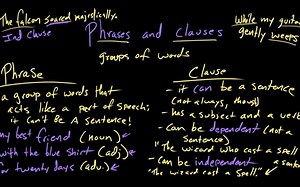 The falcon soared majestically.
Ind Clause
Phrases and Clauses
While my guitar
gently weeps
groups of words
Phrase
a group of words that
acts like a part of speech;
it Can't Be A Sentence!
my best friend (noun)
with the blue shirt (adj)
for twenty days (adv.)
Clause
- it can be a sentence
(not always, though)
- has a subject and a verb
- can be dependent (not a
Sentence)
"The wizard who cast a spell
- Can be independent
"The wizard cast a spell."